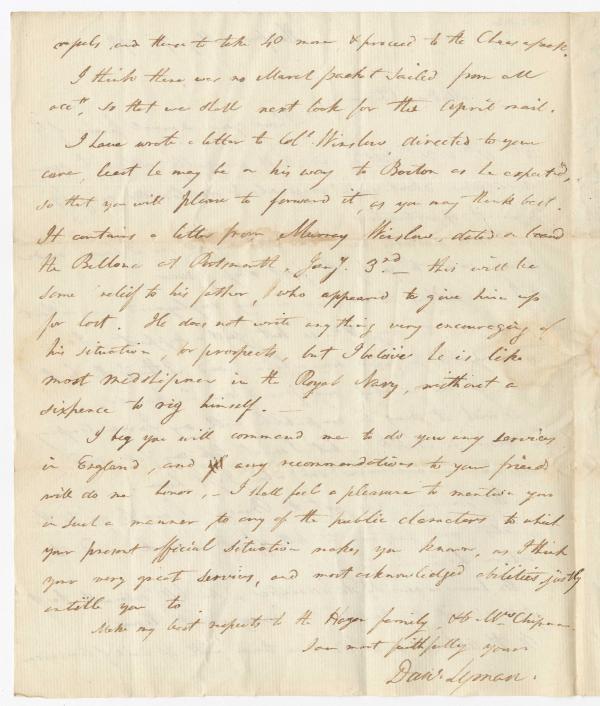 vessels, and thence to take 40 more & proceed to the Chesapeak.
I think there was no March packet sailed from all
accts, so that we shall next look for the April mail.
I have wrote a letter to Col. Winslow, directed to your
care, least he may be on his way to Boston as he expected,
so that you will Please to forward it, as you may think best.
It contains a letter from Murray Winslow, dated on board
the Bellona at Portsmouth, Jany. 3rd — this will be
some relief to his father, who appeared to give him up
for lost. He does not write anything very encouraging of
his situation, or prospects, but I believe he is like
most midshipmen in the Royal Navy, without a
sixpence to rig himself. —
I beg you will command me to do you any services
in England, and any recommendations to your friends
will do me honor, — I shall feel a pleasure to mention you
in such a manner to any of the public characters to which
your present official situation makes you known, as I think
your very great services, and most acknowledged abilities justly
entitle you to
Make my best respects to the Hazen family, & to Mrs Chipman
I am most faithfully yours
Danl. Lyman.